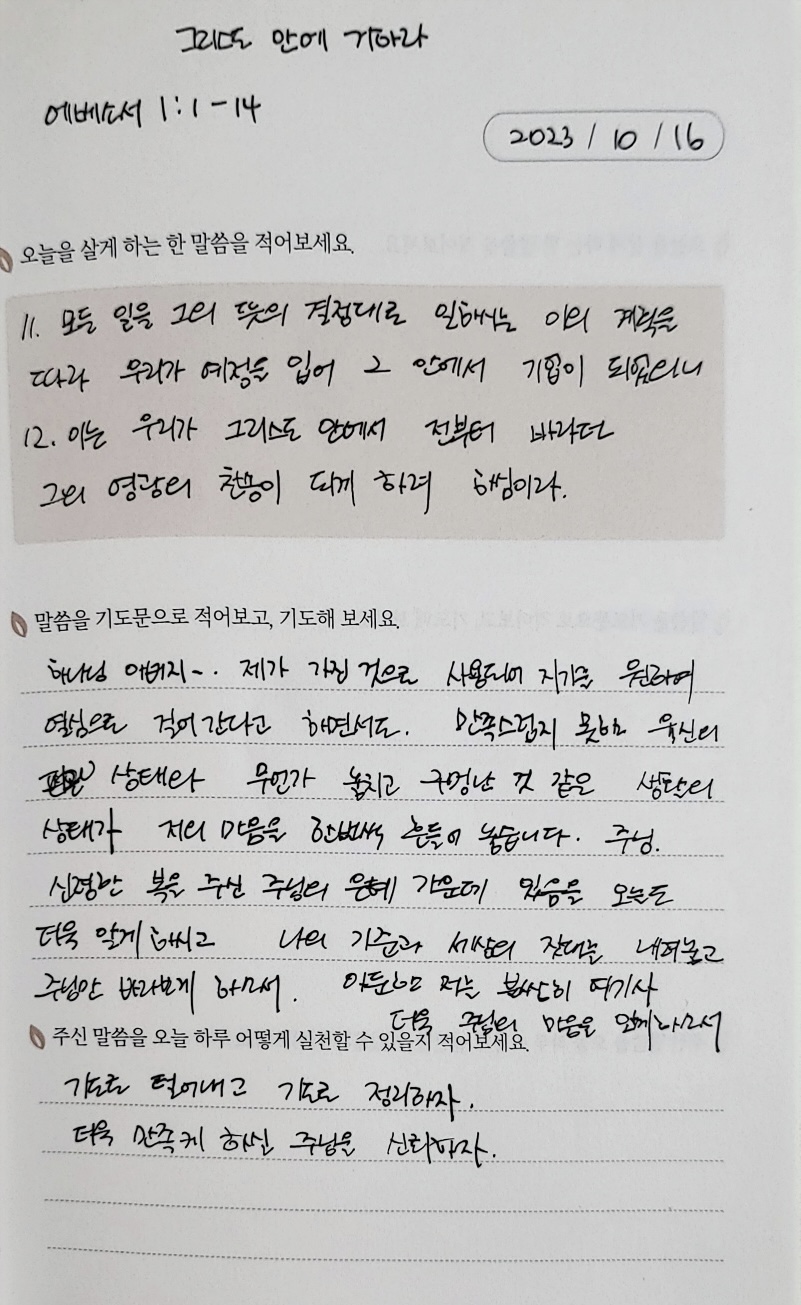 그리스도 안에 거하라
에베소서 1:1-14
2023 / 10 / 16
오늘을 살게 하는 한 말씀을 적어보세요.
11. 모든 일을 그의 뜻의 결정대로 일하시는 이의 계획을
따라 우리가 예정을 입어 그 안에서 기업이 되었으니
12. 이는 우리가 그리스도 안에서 전부터 바라던
그의 영광의 찬송이 되게 하려 하심이라.
말씀을 기도문으로 적어보고, 기도해 보세요.
하나님 아버지~. 제가 가진 것으로 사용되어 지기를 원하여
열심으로 걸어간다고 하면서도. 만족스럽지 못한 육신의
상태와 무언가 놓치고 구멍난 것 같은 생활의
상태가 저의 마음을 한번씩 흔들어 놓습니다. 주님.
신령한 복을 주신 주님의 은혜 가운데 있음을 오늘도
더욱 알게하시고 나의 기준과 세상의 잣대는 내려놓고
주님만 바라보게 하소서. 아둔한 저를 불쌍히 여기사
더욱 주님의 마음을 알게하소서
주신 말씀을 오늘 하루 어떻게 실천할 수 있을지 적어보세요.
기도로 털어내고 기도로 정리하자.
더욱 만족케 하실 주님을 신뢰하자.